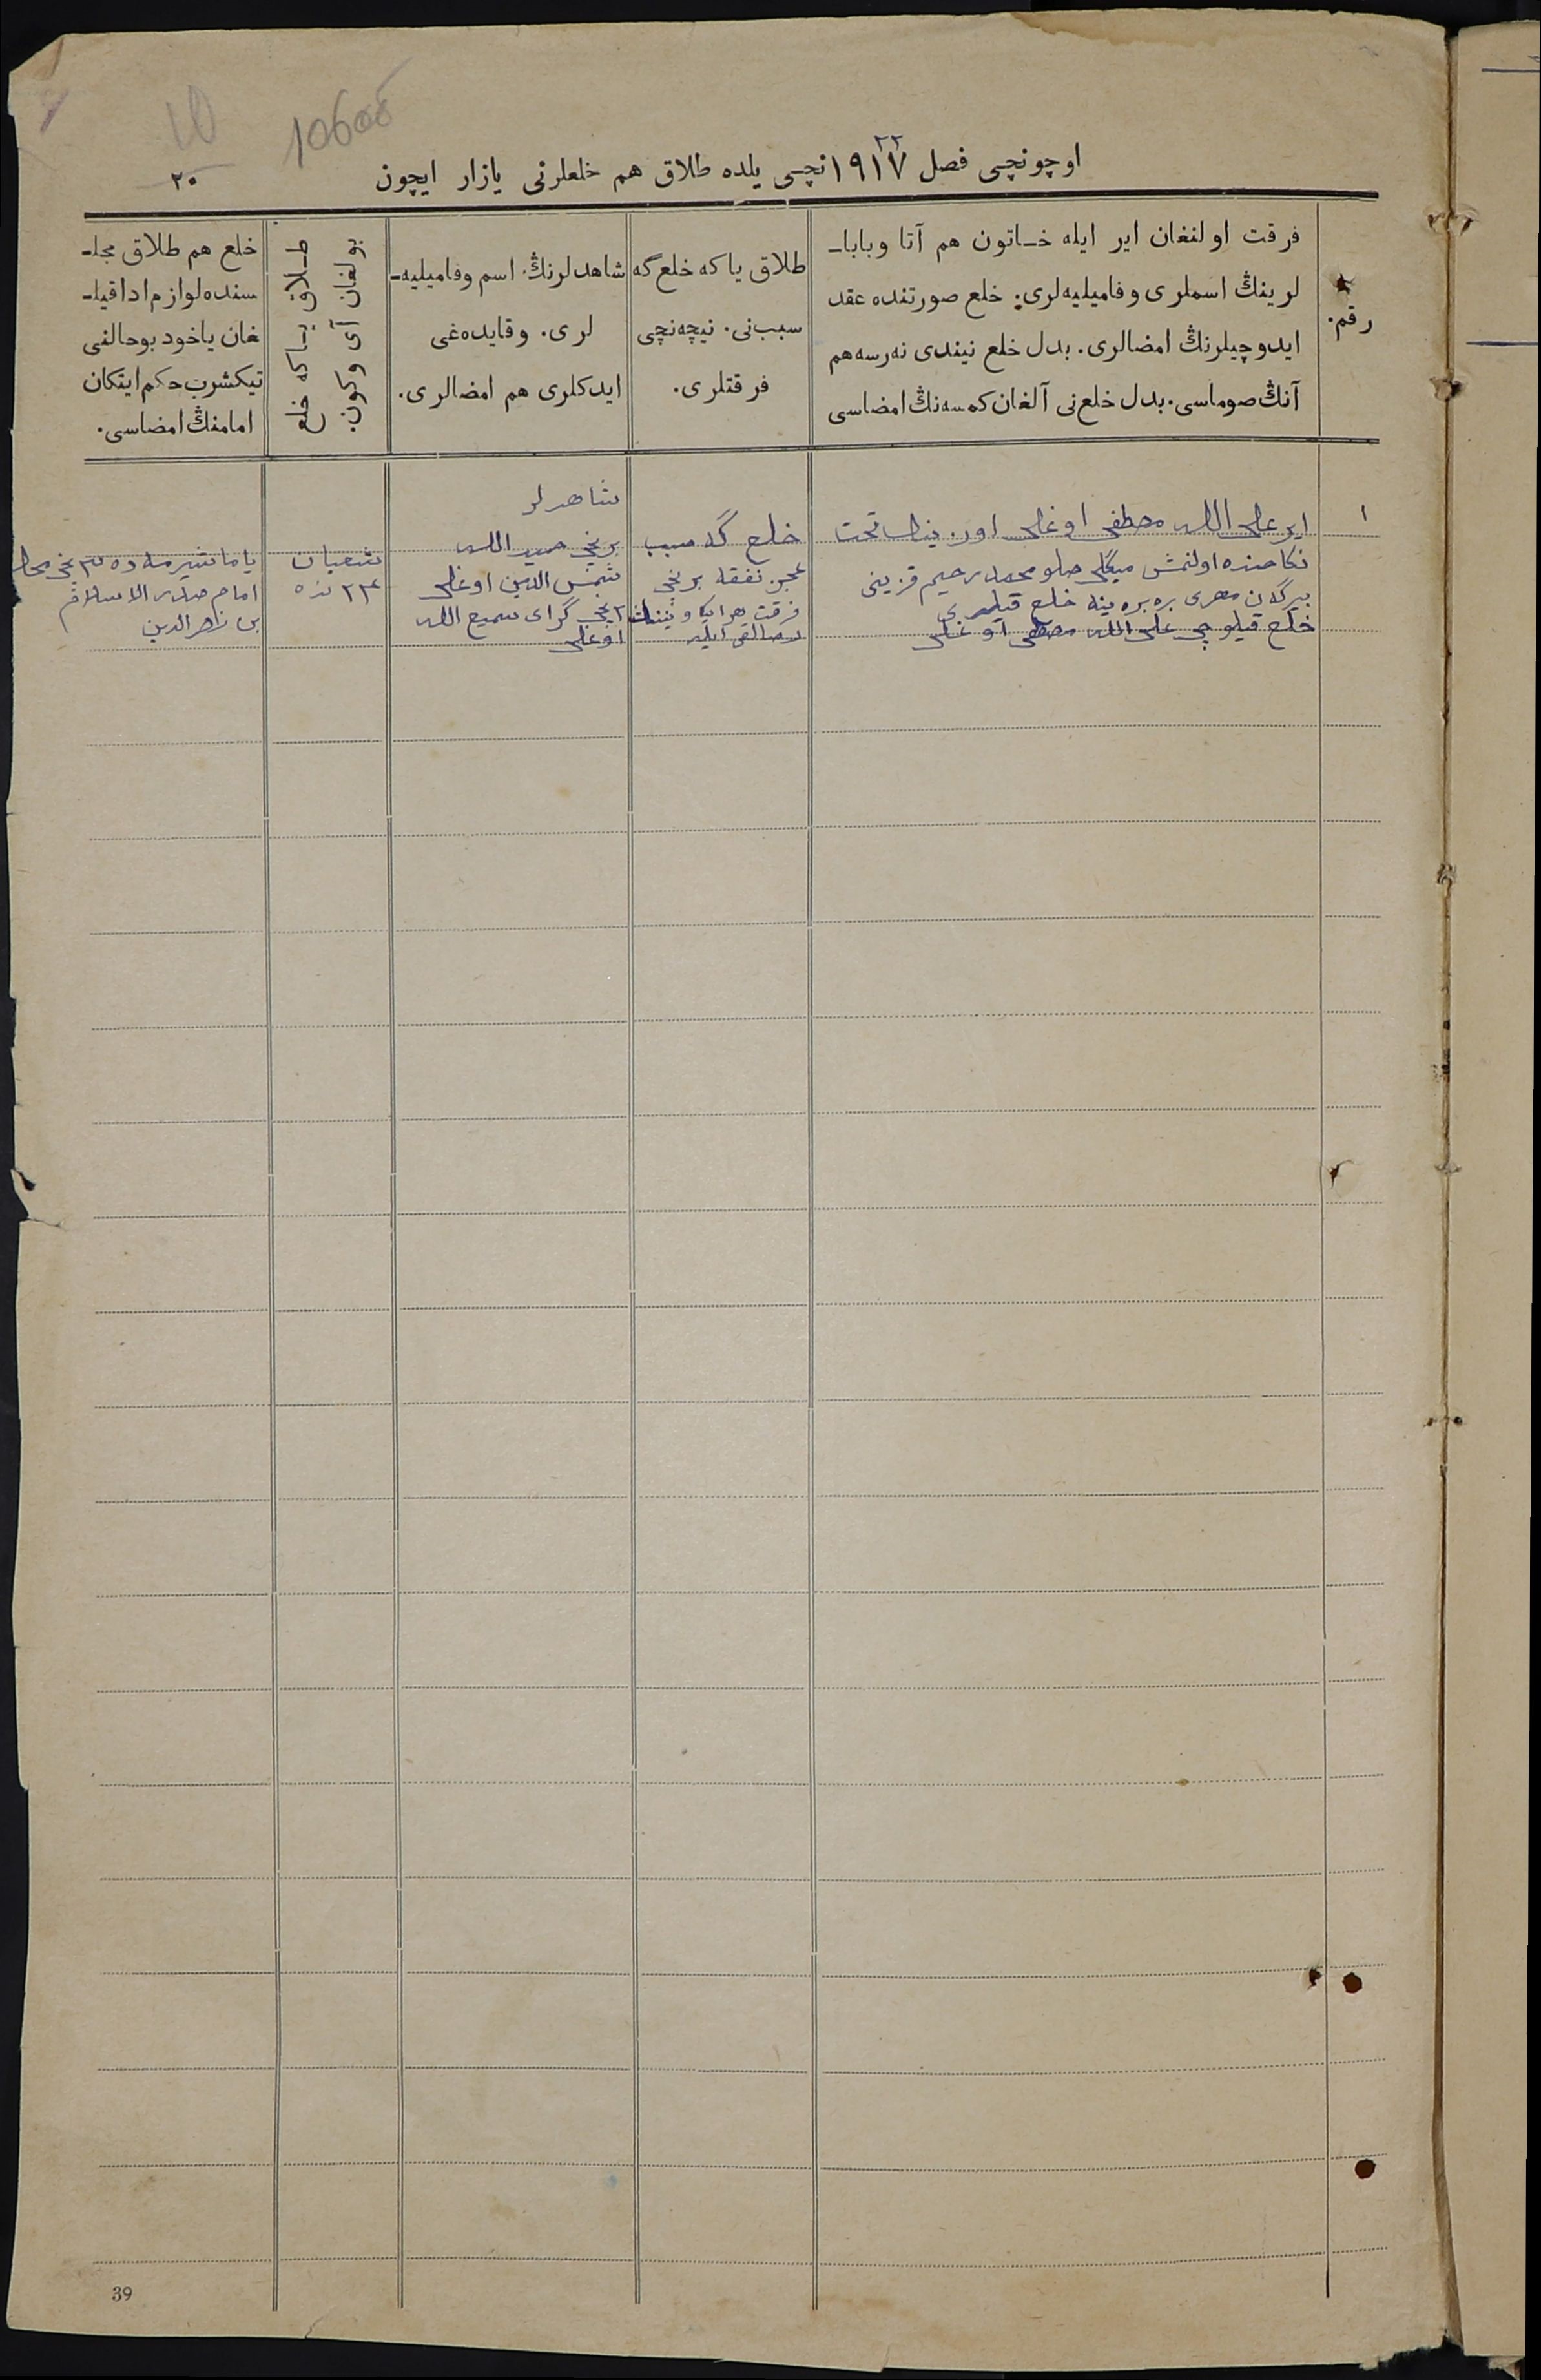 10
10606
٢٠
٢٢
اوچونچی فصل ١٩١٧نچی یلده طلاق هم خلعلرنی یازار ایچون
رقم.
فرقت اولنغان ایر ایله خـاتون هم آتا وبابا-
لرینڭ اسملری وفامیلیه‌لری: خلع صورتنده عقد
ایدوچیلرنڭ امضالری. بدل خلع نیندی نه‌رسه هم
آنڭ صوماسی. بدل خلع‌نی آلغان کمسه‌نڭ امضاسی
طلاق یا که خلع گه
سبب‌نی. نیچه‌نچی
فرقتلری.
شاهدلرنڭ اسم وفامیلیه-
لری. وقایده‌غی
ایدکلری هم امضالری.
طـلاق یـاکه خلع
بولغان آی وکون.
خلع هم طلاق مجلـ
سنده لوازم ادا قیلـ
غان یاخود بوحالنی
تیکشرب حکم ایتکان
امامنڭ امضاسی.
١
ایر علی الله مصطفی اوغلی اوزینڭ تحت
نکاحنده اولنمش میگلی صلو محمدرحیم قزینی
بیرگه‌ن مهری بره‌بره‌ینه خلع قیلدی
خلع قیلوچی علی الله مصطفی اوغلی
خلع گه سبب
عجز نفقه برنچی
فرقت
شاهدلر
برنچی الله
شمس الدین اوغلی
٢نچی گرای سمیع الله
اوغلی
شعبان
٢٣ نده
٣ نچی
امام صدر الاسلام
بن زاهرالدین
39